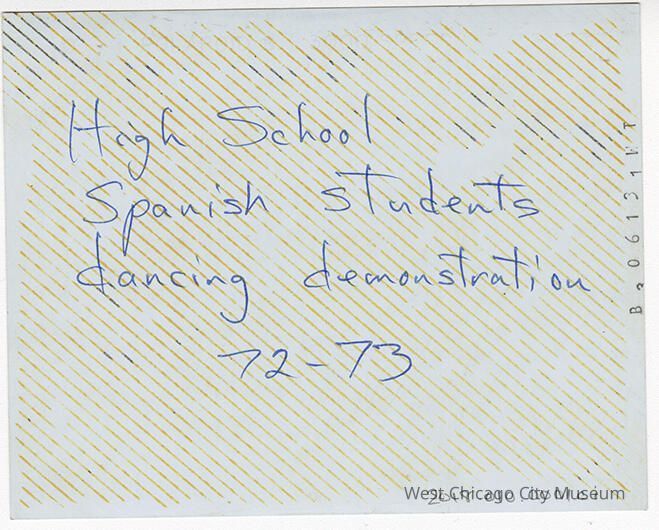 High School
Spanish students
dancing demonstration
72-73
West Chicago City Museum